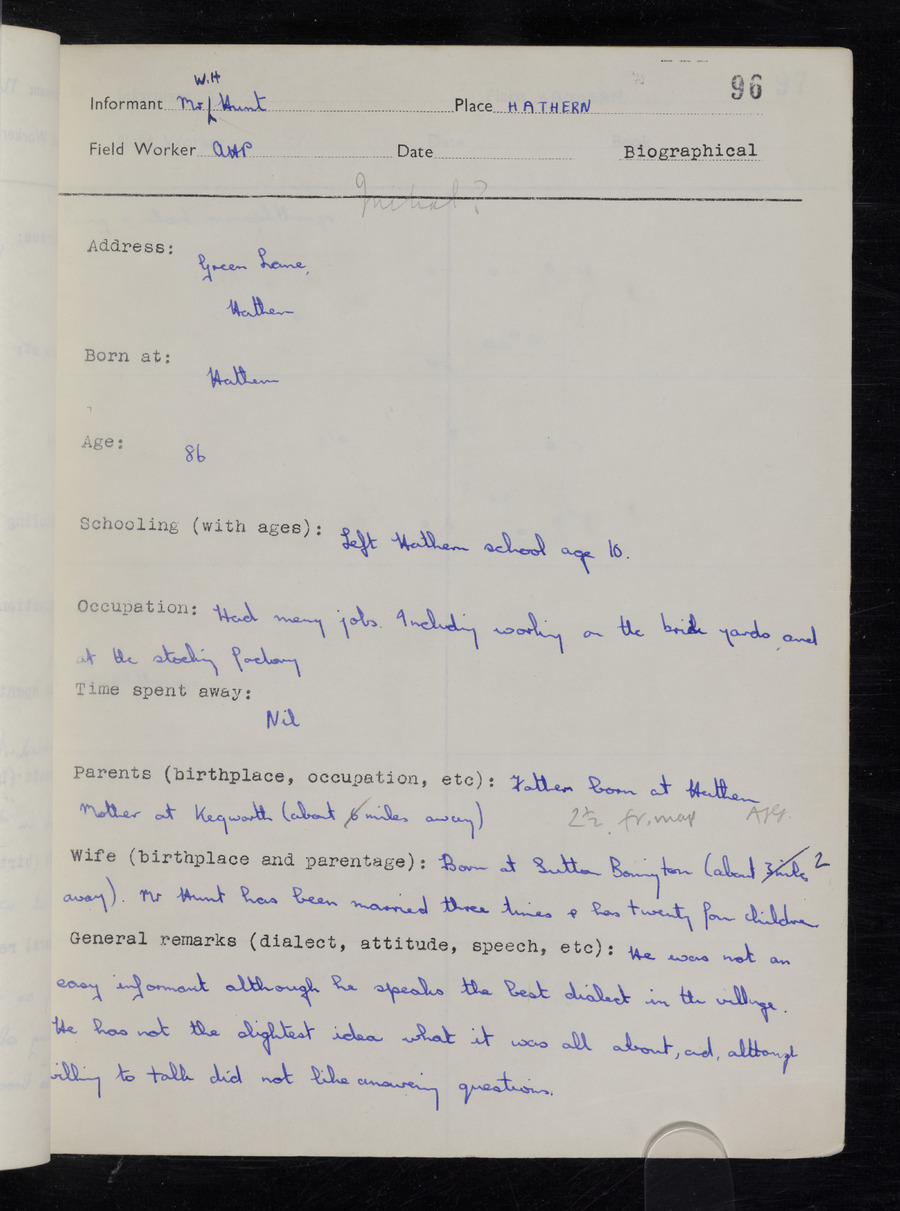 96
W.H
Informant Mr Hunt Place HATHERN
Field Worker AHP Date Biographical
Initial?
Address:
Green Lane,
Hathern
Born at:
Hathern
Age: 86
Schooling (with ages): Left Hathern school age 10.
Occupation: Had many jobs. Including working on the brick yards, and
at the stocking factory
Time spent away:
Nil
Parents (birthplace, occupation, etc): Father born at Hathern
Mother at Kegworth (about 6 miles away) 2½ fr. map
Wife (birthplace and parentage): Born at Sutton Bonington (about 3 miles 2
away). Mr Hunt has been married three times & has twenty four children
General remarks (dialect, attitude, speech, etc): He was not an
easy informant although he speaks the best dialect in the village.
He has not the slightest idea what it was all about, and, although
willing to talk did not like answering questions.